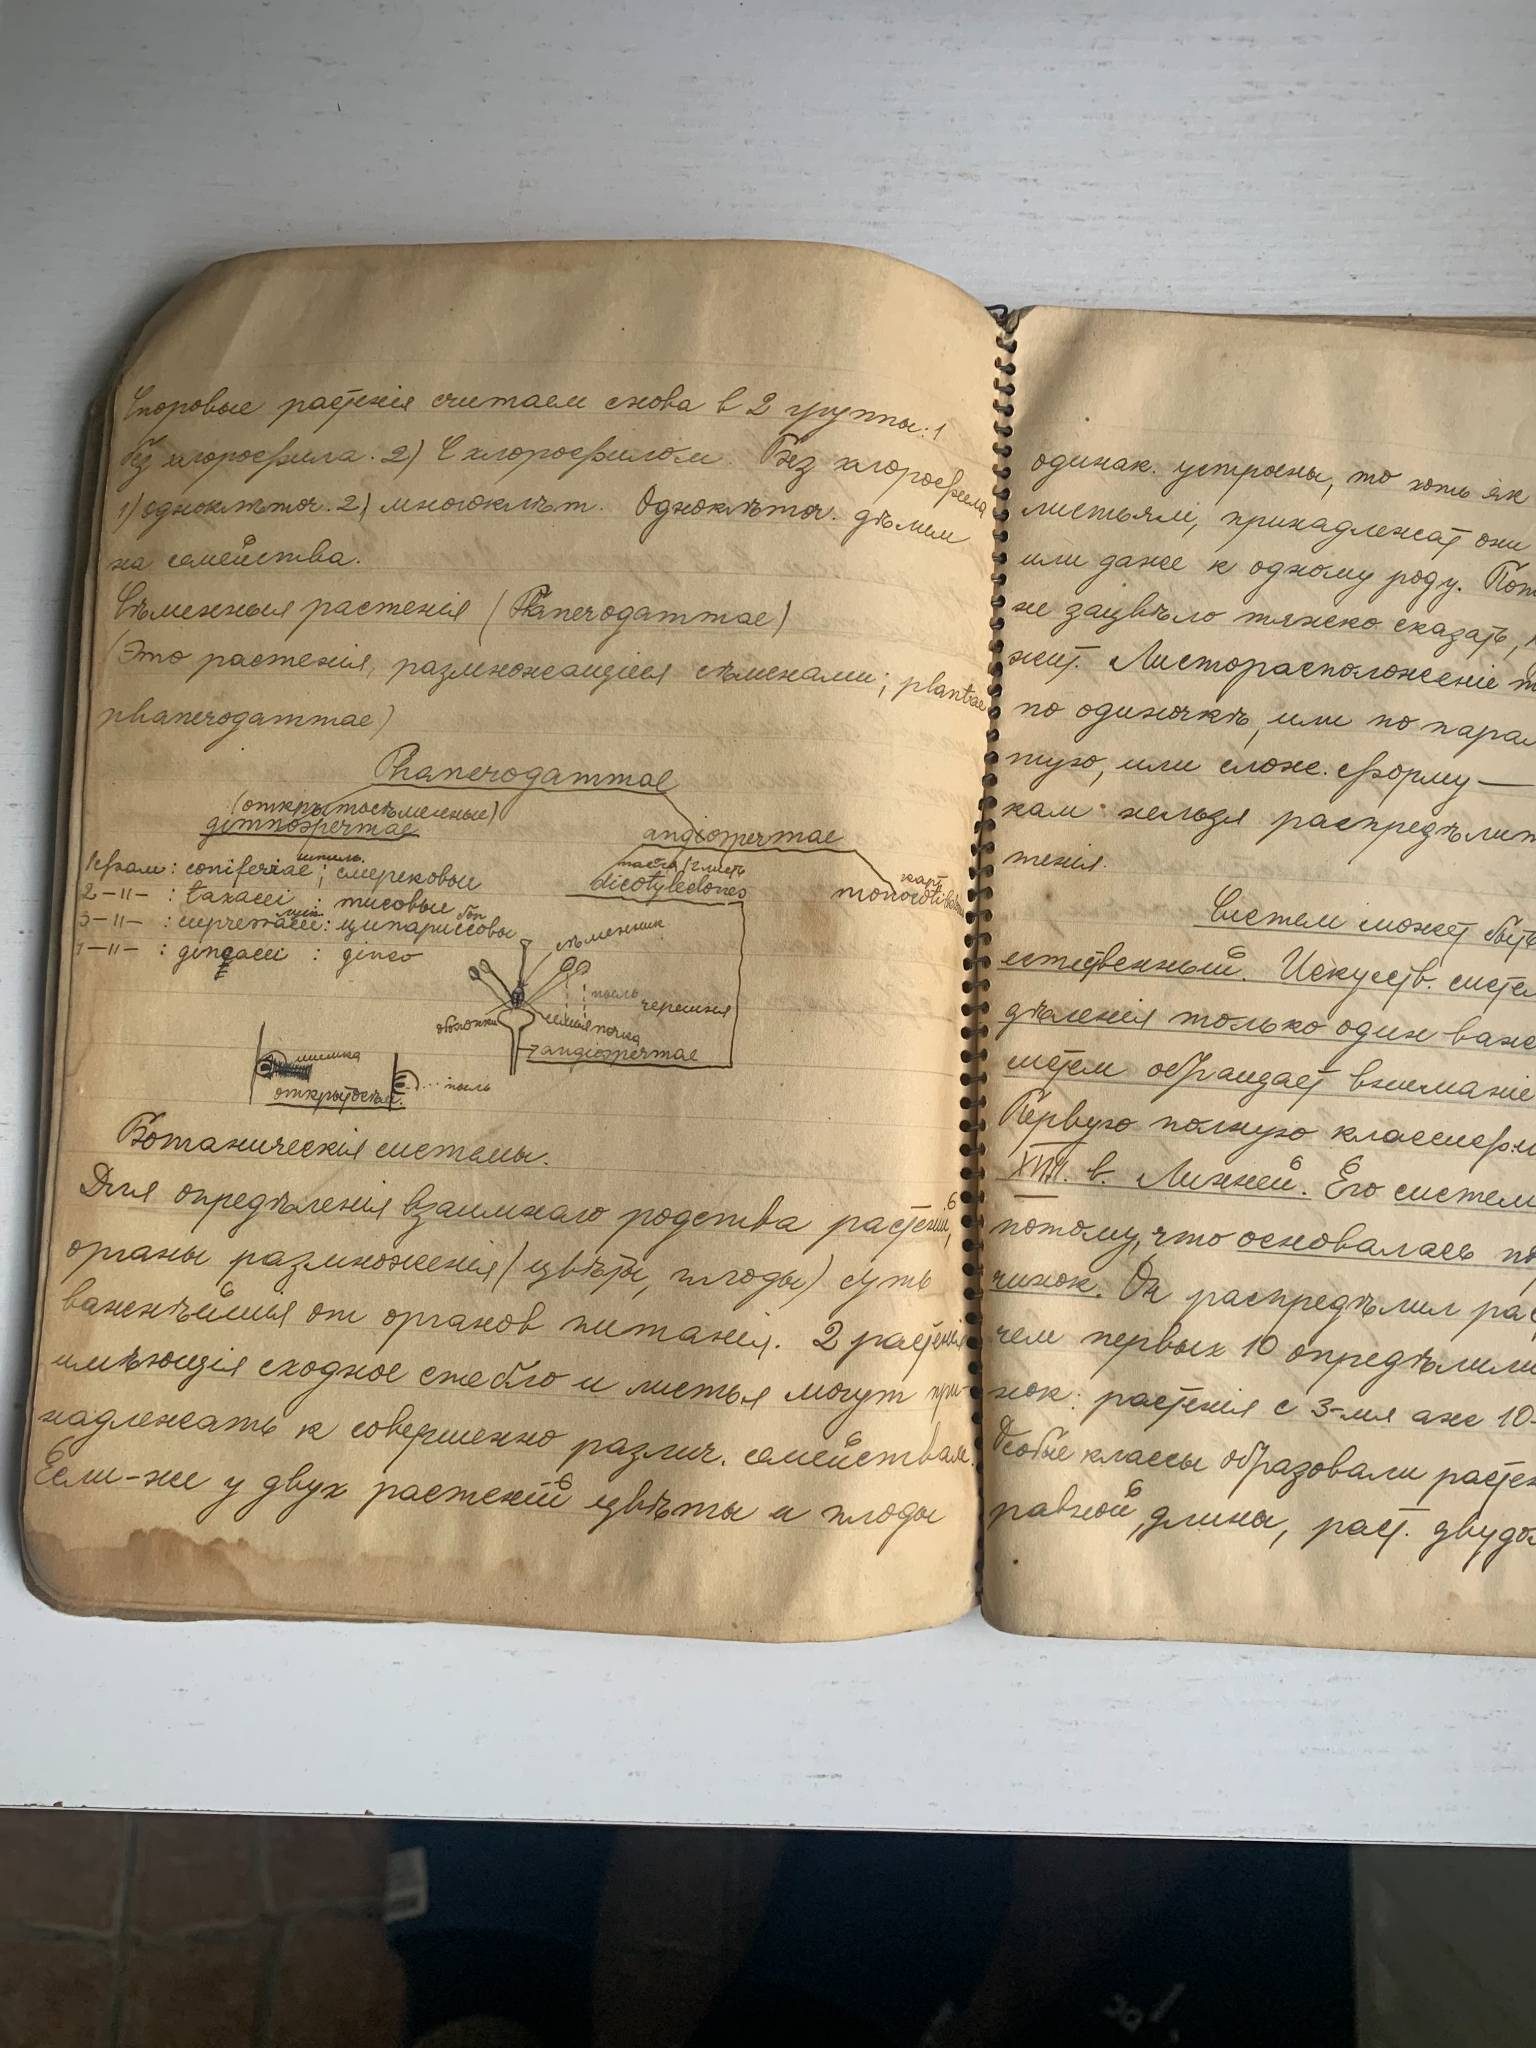 Споровые растенія считаем снова в 2 группы: 1
Без хлорофила. 2) С хлорофилом. Без хлорофила
1) одноклѣточ. 2) многоклѣт. Одноклѣточ. дѣлим
на семейства.
Сѣменныя растенія (Phanerogammae)
(Это растенія, размножающіеся сѣменами; plantae
phanerogammae)
Phanerogammae
(открытосѣменные)
gimnospermae
angiospermae
1 фам: coniferiae; смерековые
2 -"- : taxacei : тисовые
3 -"- : : ципариссовы
-"- : : ginco
dicotyledones
сѣменник
пыль черешня
оболочки
почка
angiospermae
шишка
открытосѣм.
пыль
Ботаническія системы.
Для опредѣленія взаимнаго родства растеній,
органы размноженія (цвѣты, плоды) суть
важнѣйшія от органов питанія. 2 растенія
имѣющія сходное стебло и листья могут при-
надлежать к совершенно различ. семействам.
Если-же у двух растеній цвѣты и плоды
одинак. устроены, то хоть як
листьям, принадлежат они
или даже к одному роду. Пот
не зацвѣло тяжко сказать,
жит. Листорасположеніе
по одиночкѣ, или по парам
тую, или слож. форму —
кам нельзя распредѣлит
тенія.
Систем может быть
естественный. Искуств. систем
дѣленія только один важ
систем обращает вниманіе
Первую полную классифи
XVIII. в. Линней. Его систем
потому, что основалась
чинок. Он распредѣлил рас
чем первых 10 опредѣлили
нок: растенія с 3-мя аж 10-
Особые классы образовали растен
равной длины, раст. двудом